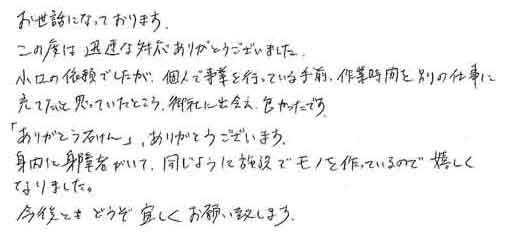 お世話になっております。
この度は 迅速な対応ありがとうございました。
小口の依頼でしたが、個人で事業を行っている手前、作業時間を別の仕事に
充てたいと思っていたところ、御社に出会え、良かったです。
「ありがとう石けん」、ありがとうございます。
身内に身障者がいて、同じように施設でモノを作っているので嬉しく
なりました。
今後とも どうぞ 宜しくお願い致します。